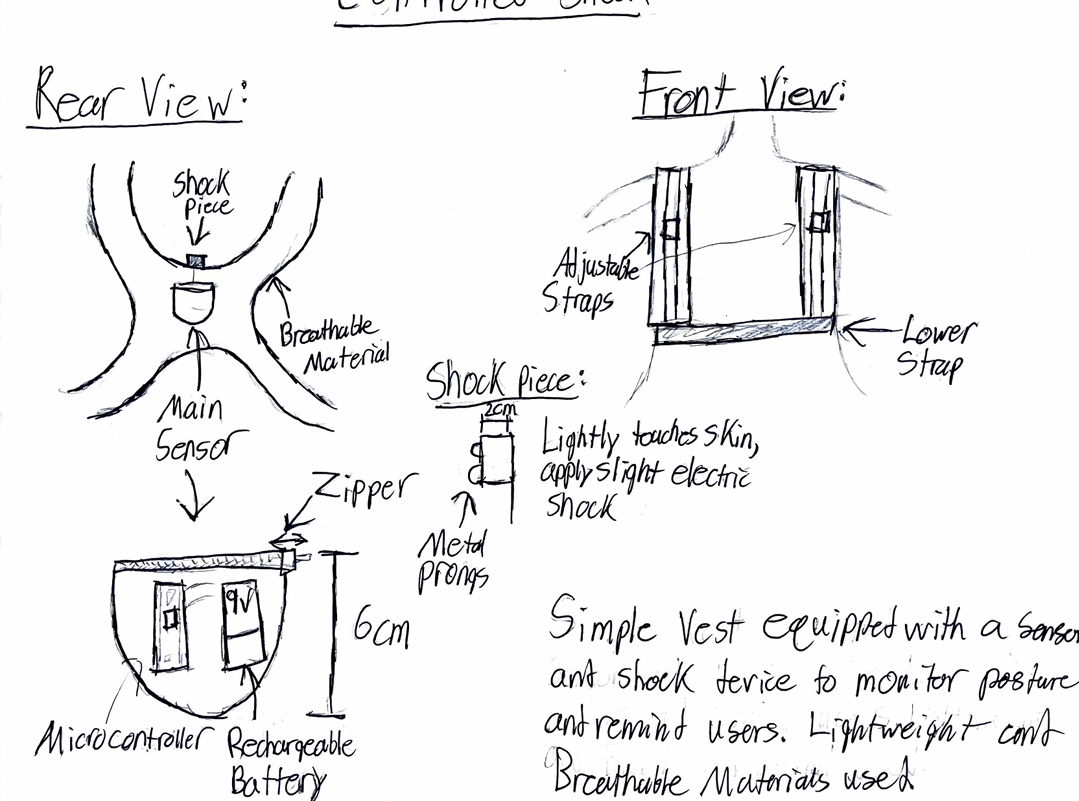 Controlled Shock
Rear View:
Front View:
Shock
Piece
Adjustable
Straps
Breathable
Material
Lower
Strap
Shock piece:
2cm
Main
Sensor
Lightly touches skin,
apply slight electric
shock
Zipper
Metal
prongs
9V
6cm
Microcontroller
Rechargeable
Battery
Simple Vest equipped with a sensor
and shock device to monitor posture
and remind users. Lightweight and
Breathable Materials used